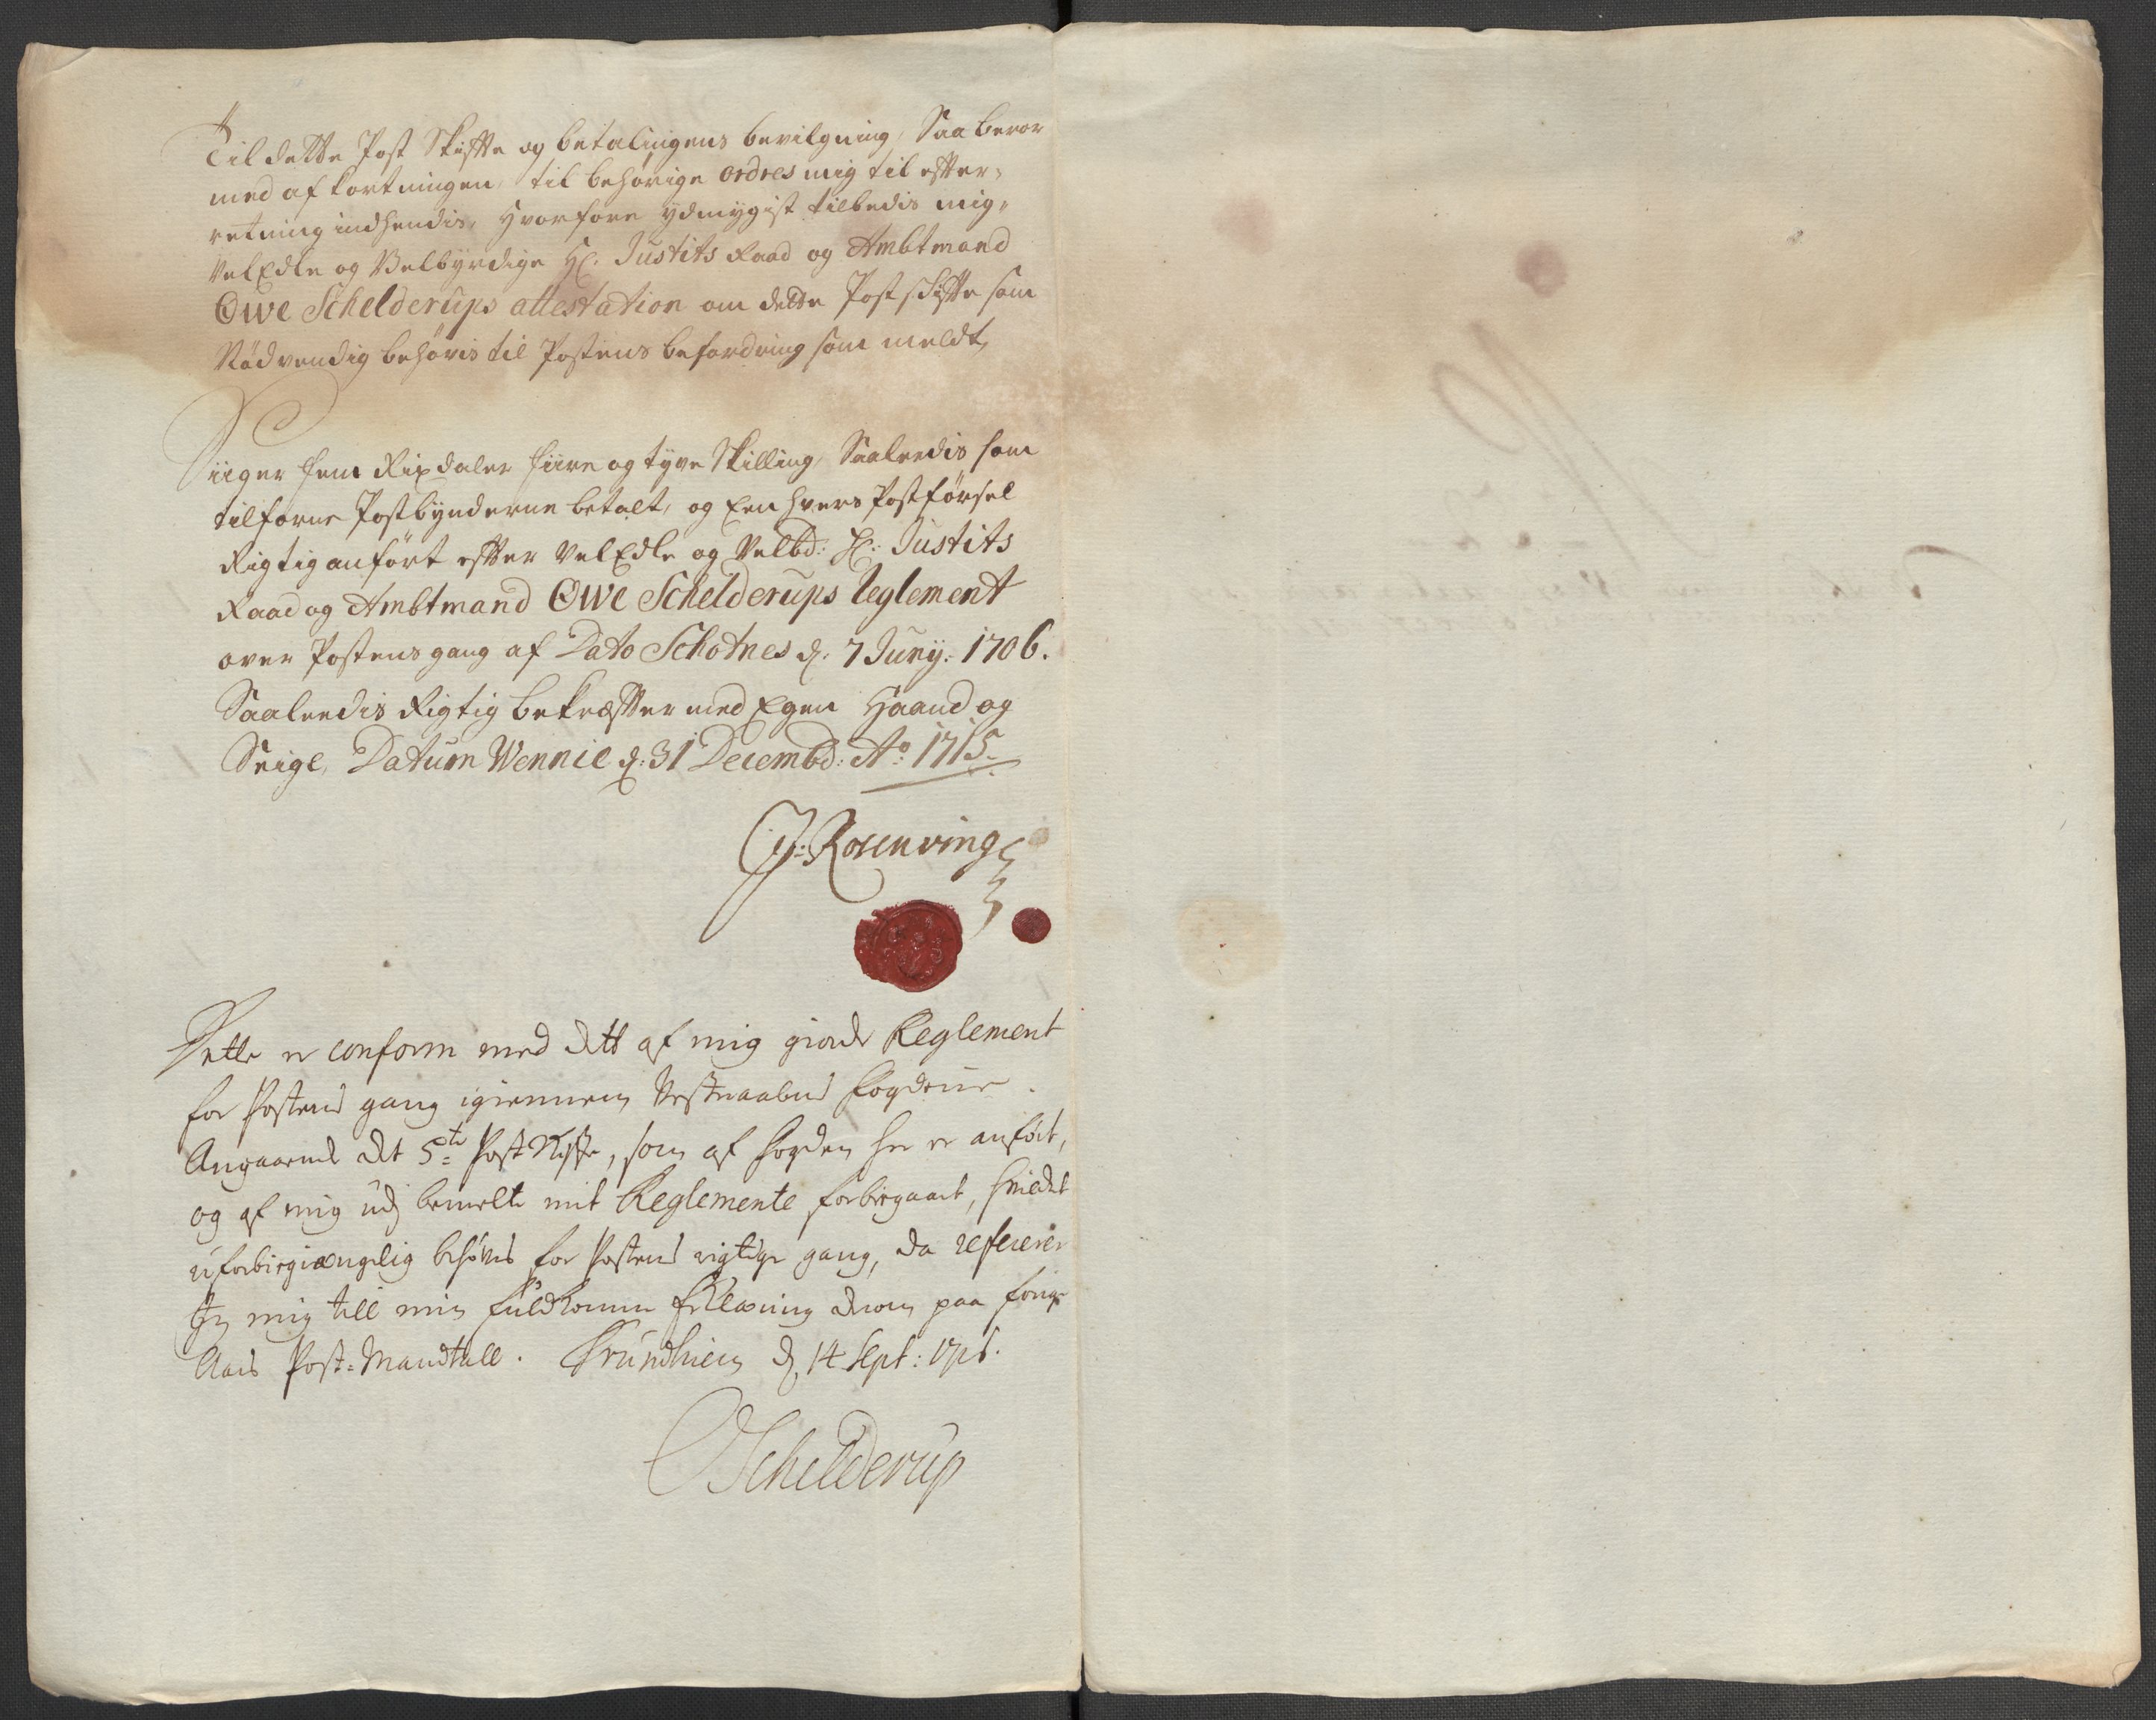 Til dette Post Skiffte og betalingens bevilgning, Saa beror
med afkortningen, til behörige ordres mig til effter¬
retning indhendis, Hvorfore ydmygist tilbedis mig,
VelEdle og Velbyrdige Hr. Justits Raad og Ambtmand
Owe Schelderups attestation om dette Post skiffte som
Nödvendig behövis til Postens befordring som meldt,
Siiger fem Rixdaler fiire og tyve Skilling, Saaledis som
tilforne Postbønderne betalt, og Een hvers Postförsel
Rigtig anfört effter VelEdle og Velbd: Hr: Justits
Raad og Ambtmand Owe Schelderups Reglement
over Postens gang af Dato Schotnes d. 7 Juny: 1706.
Saaleedis Rigtig bekræffter med Egen Haand og
Seigl, Datum Wennie d: 31 Decembd: Ao 1715.
Rosenving
Dette er conform med dett af mig giorde Reglement
for Postens gang igiennem Fogderie.
Angaaende det 5te Post Skiffte, som af Fogden her er anfört,
og af mig udj bemelte mit Reglemente forbigaaet, hvilcket
uforbigiængelig behöves for Postens rigtige gang, da referer
Jeg mig till min fuldkomne Erklæring derom paa forige
Aars Post-Mandtall. Trundhiem d. 14 Sept: 1716.
OSchelderup